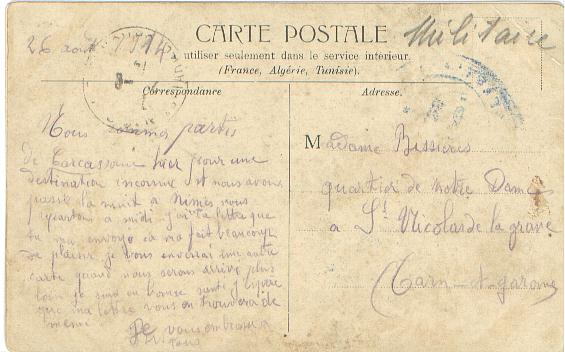 CARTE POSTALE Militaire
26 août 1914
utiliser seulement dans le service intérieur.
(France, Algérie, Tunisie).
Correspondance
Nous sommes partis
de Carcassonne hier pour une
destination inconnue et nous avons
passé la nuit a Nimes nous
partons a midi
tu ma envoyé ca ma fait beaucoup
de plaisir je vous enverrai une autre
carte quand nous serons arrivé plus
loin je suis en bonne santé j'espère
que ma lettre vous en trouvera de
meme
Je vous embrasse
tous
Adresse.
Madame Bissieres
quartier de Notre Dame
a St Nicolas de la grave
Tarn-et-garonne